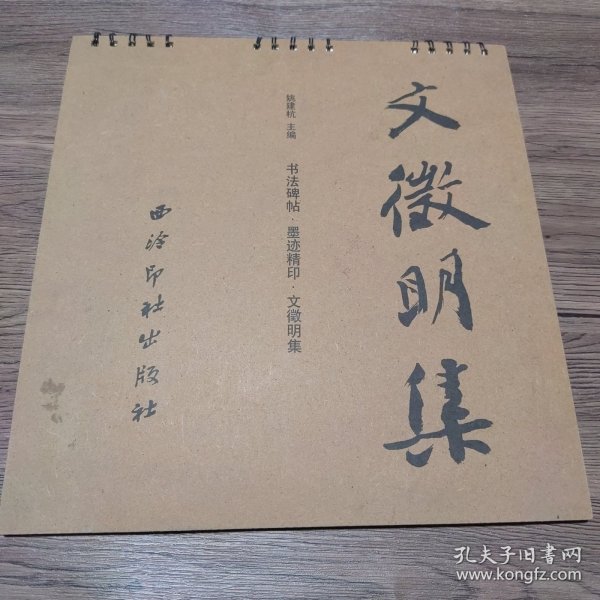 文徵明集
姚建杭 主编
书法碑帖·墨迹精印·文徵明集
西泠印社出版社
孔夫子旧书网
www.kongfz.com